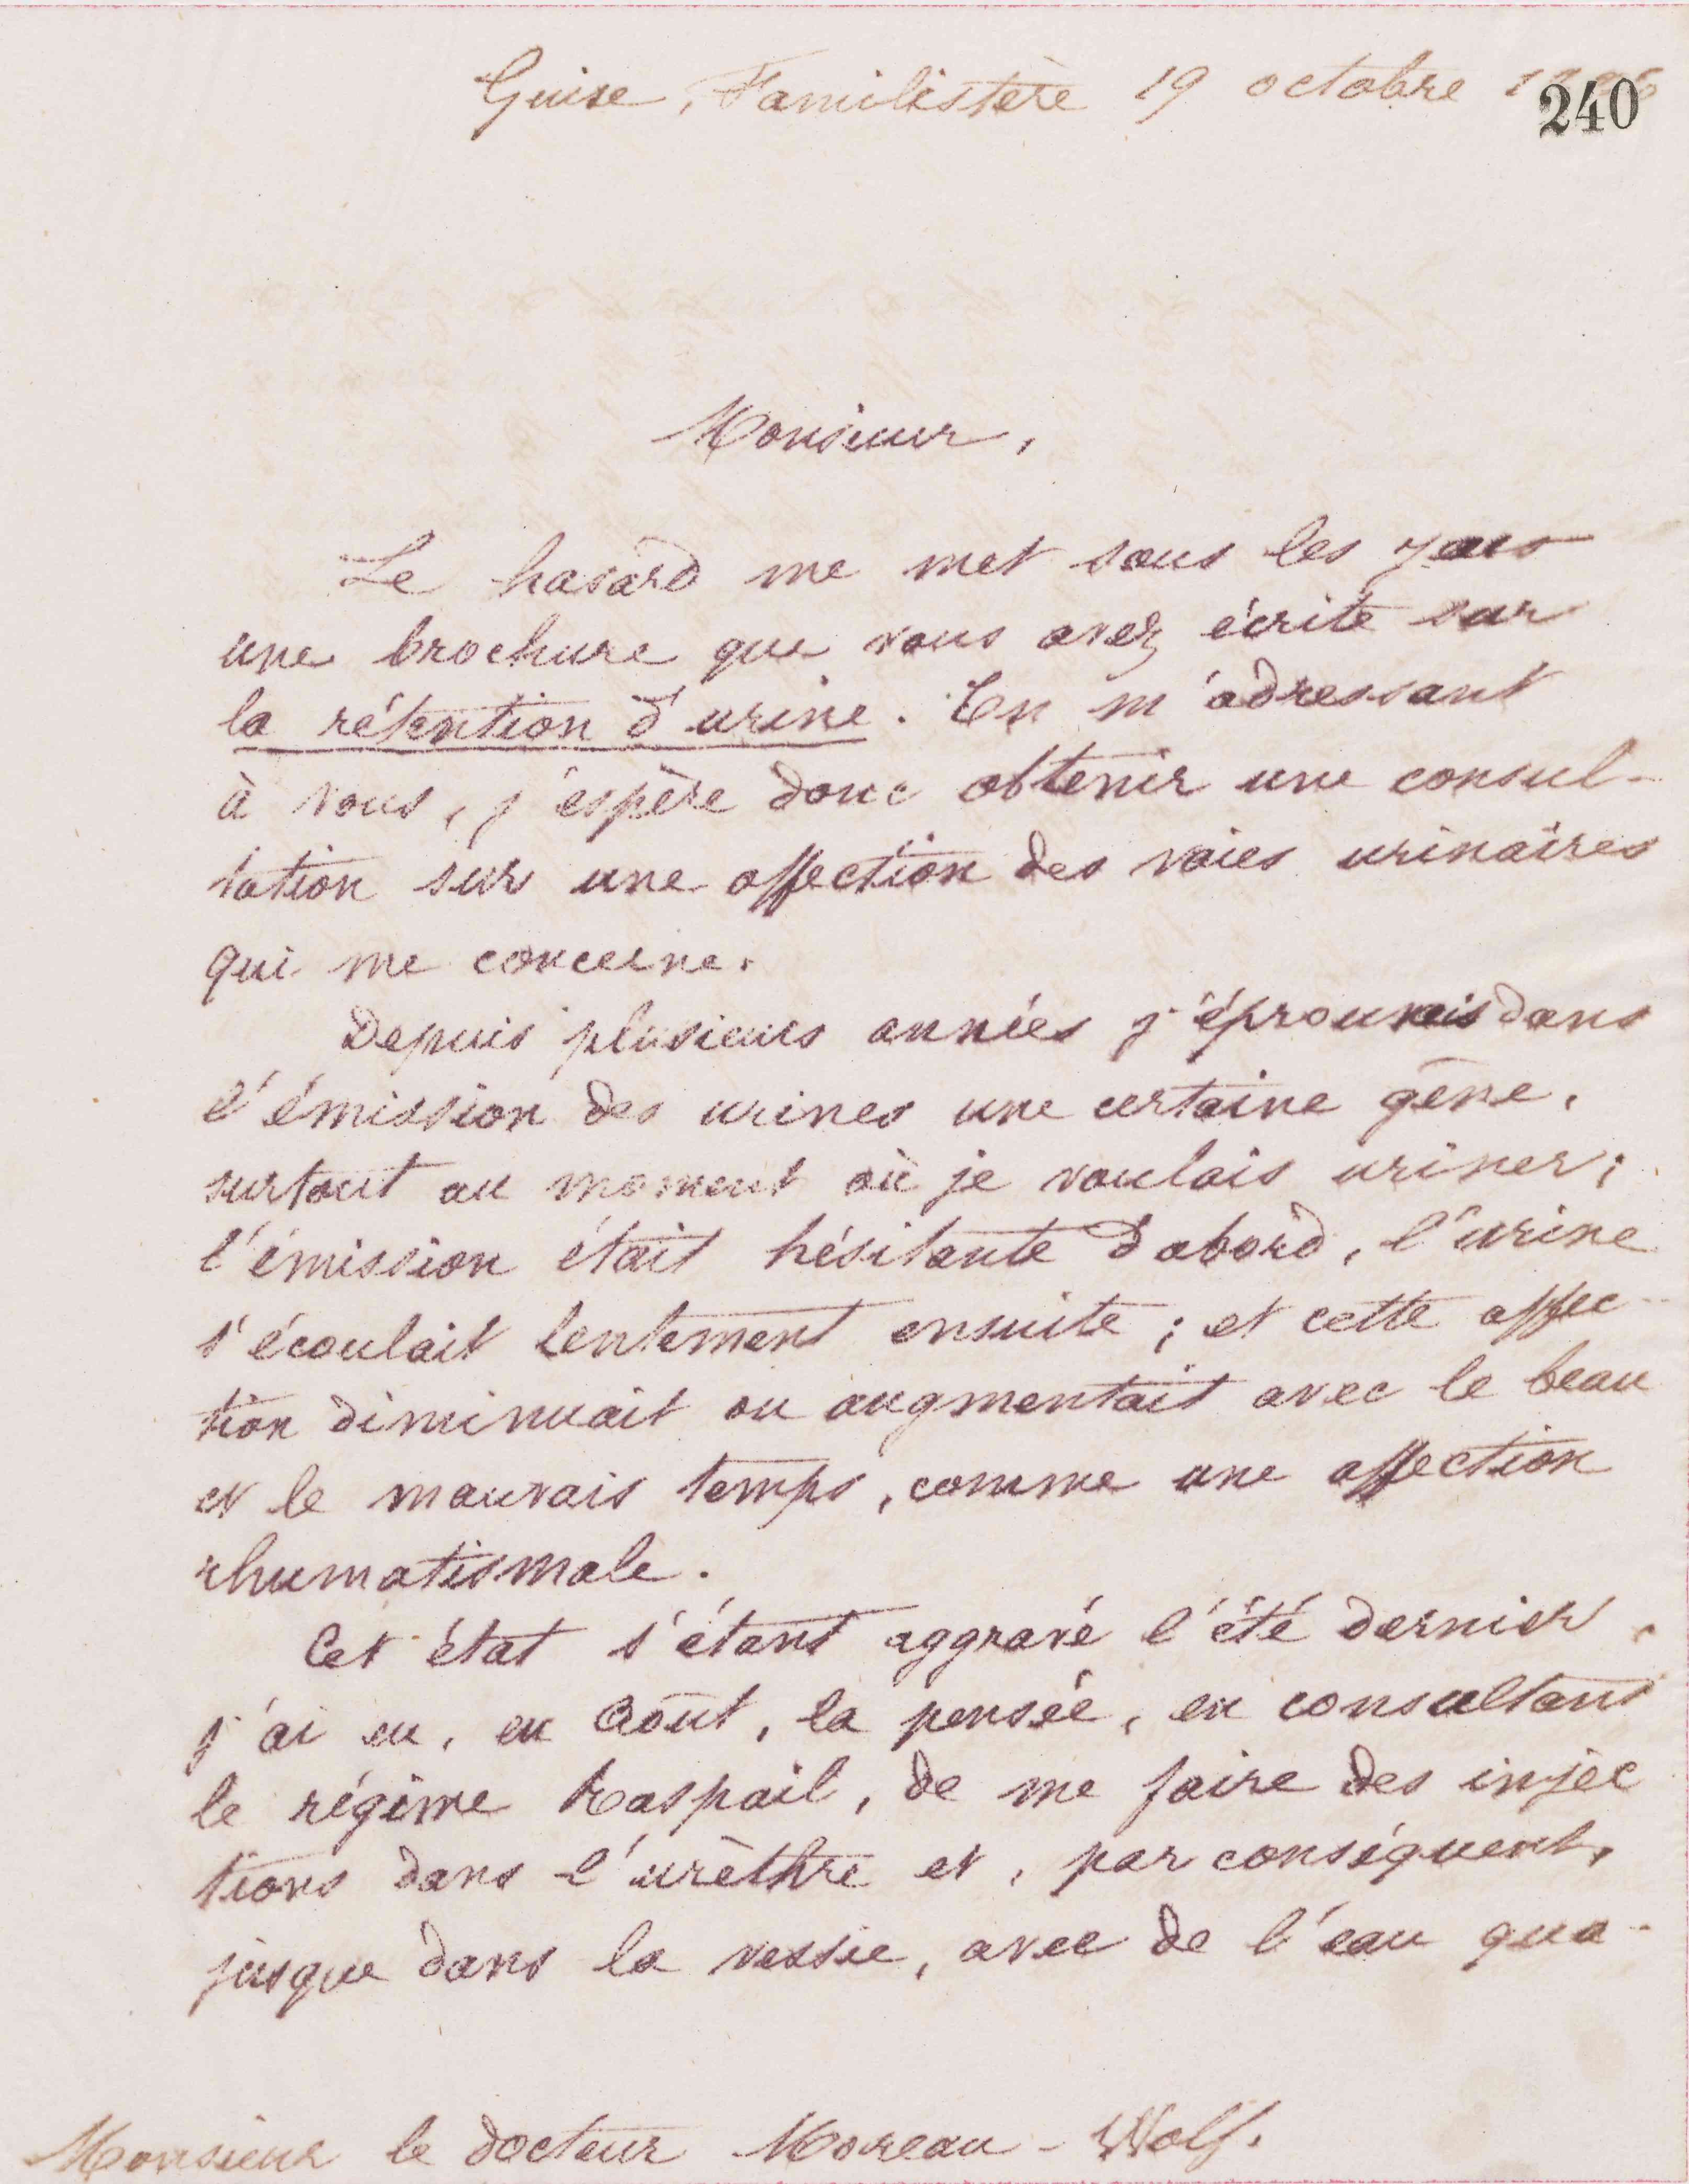 Guise, Familistère 19 octobre
240
Monsieur,
Le hasard me met sous les yeux
une brochure que vous avez écrite sur
la rétention d'urine. En m'adressant
à vous, j'espère donc obtenir une consul-
tation sur une affection des voies urinaires
qui me concerne.
Depuis plusieurs années j'éprouvais dans
l'émission des urines une certaine gêne,
surtout au moment où je voulais uriner;
l'émission était hésitante d'abord, l'urine
s'écoulait lentement ensuite; et cette affec-
tion diminuait ou augmentait avec le beau
et le mauvais temps, comme une affection
rhumatismale.
Cet état s'étant aggravé l'été dernier,
j'ai eu, en Août, la pensée, en consultant
le régime Raspail, de me faire des injec
tions dans l'urèthre et, par conséquent,
jusque dans la vessie, avec de l'eau qua-
Monsieur le docteur Moreau-Wolf.